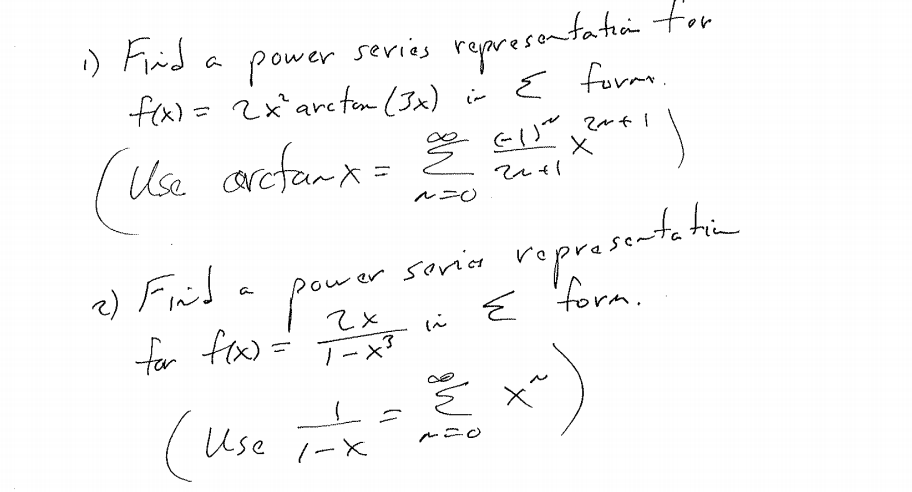 1) Find a power series representation for
f(x) = 2x² arctan(3x) in Σ form.
(Use arctan x = Σ_{n=0}^{∞} (-1)^n/(2n+1) x^{2n+1})
2) Find a power series representation
for f(x) = 2x/(1-x³) in Σ form.
(Use 1/(1-x) = Σ_{n=0}^{∞} x^n)